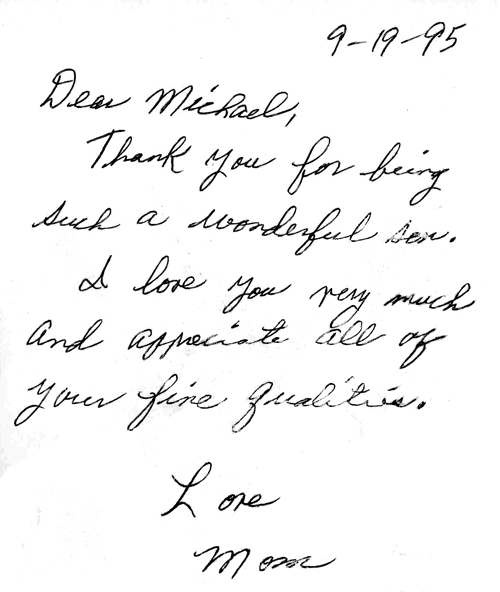 9-19-95
Dear Michael,
Thank you for being
such a wonderful son.
I love you very much
and appreciate all of
your fine qualities.
Love
Mom